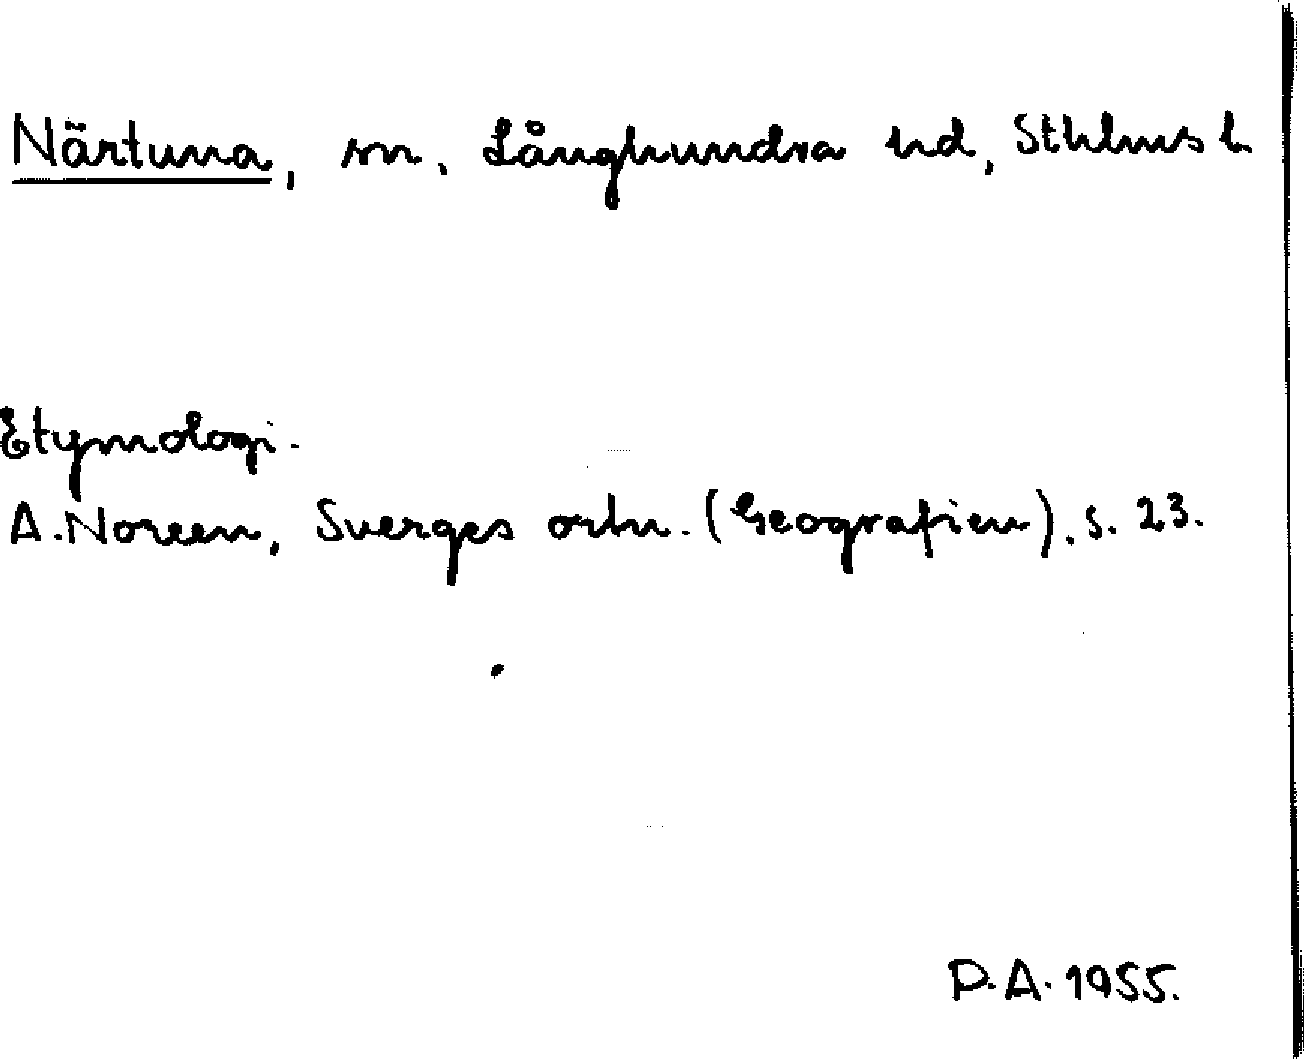 Närtuna, sn, Långhundra hd, Sthlms l.
Etymologi.
A. Noreen, Sverges ortn. (Geografien), s. 23.
P.A. 1955.